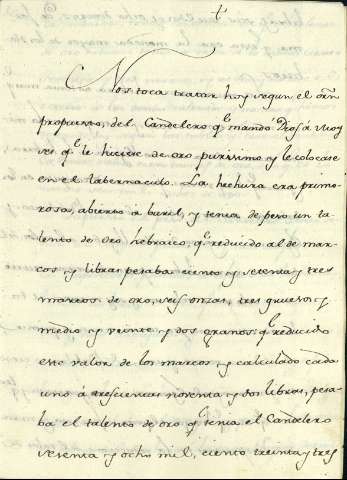 Nos toca tratar hoy segun el orn
propuesto, del Candelero qe mando Dios á Moy
ses qe le hiciese de oro purissimo y le colocase
en el tabernaculo. La hechura era primo
rosa, abierto à buril, y tenia de peso un ta
lento de oro hebraico, qe reducido al de mar
cos y libras pesaba ciento y setenta y tres
marcos de oro, seis onzas, tres gruesos y
medio y veinte y dos granos: qe reducido
este valor de los marcos, y calculado cada
uno á trescientas noventa y dos libras, pesa
ba el talento de oro qe tenia el Candelero
sesenta y ocho mil, ciento treinta y tres